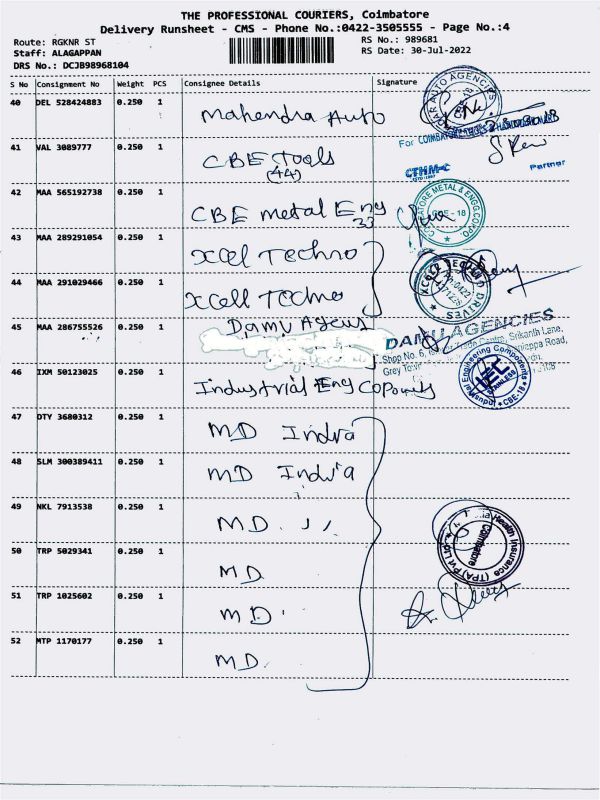 THE PROFESSIONAL COURIERS, Coimbatore
Delivery Runsheet - CMS - Phone No.:0422-3505555 - Page No.:4
Route: RGKNR ST
Staff: ALAGAPPAN
DRS No.: DCJB98968104
RS No.: 989681
RS Date: 30-Jul-2022
S No Consignment No Weight PCS Consignee Details Signature
40 DEL 528424883 0.250 1 Mahendra Auto
For COIMBATORE
41 VAL 3089777 0.250 1 CBE Tools
(44)
CTHM-C
Partner
42 MAA 565192738 0.250 1 CBE metal Eng
33
43 MAA 289291054 0.250 1 Xcel Techno
44 MAA 291029466 0.250 1 Xcell Techno
45 MAA 286755526 0.250 1 Damu
DAMU AGENCIES
Shop No. 6, Trade Centre, Srikanth Lane,
Road,
Grey Town
46 IXM 50123025 0.250 1 Industrial Eng
Engineering Components
IEC
STAINLESS
CBE-18
47 DTY 3680312 0.250 1 MD India
48 SLM 300389411 0.250 1 MD India
49 NKL 7913538 0.250 1 MD ,,
Health Insurance (TPA) Pvt Ltd
Coimbatore
50 TRP 5029341 0.250 1 MD
51 TRP 1025602 0.250 1 MD
52 MTP 1170177 0.250 1 MD.